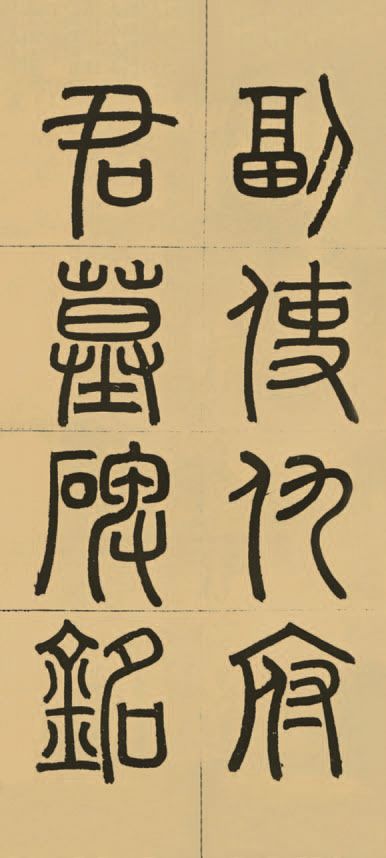 副使仇府
君墓碑銘